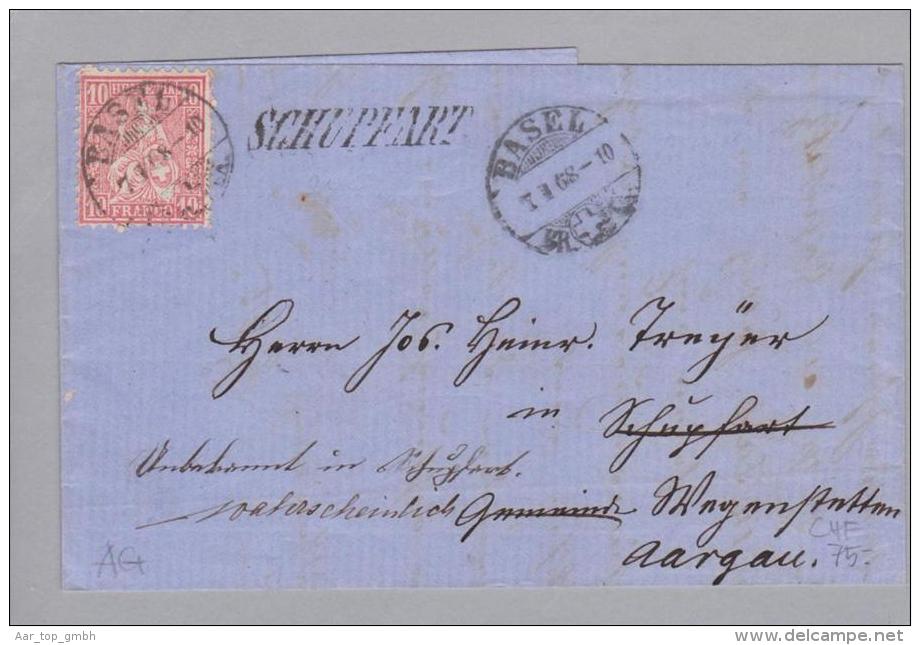 10 10
FRANCO
BASEL
SCHUPFART
BASEL
68-10
Herrn Jos. Heinr. Treyer
in Schupfart
Unbekannt in Schupfart.
wahrscheinlich Gemeinde Wegenstetten
Aargau.
AG
75.-
Aar_top_gmbh
www.delcampe.net